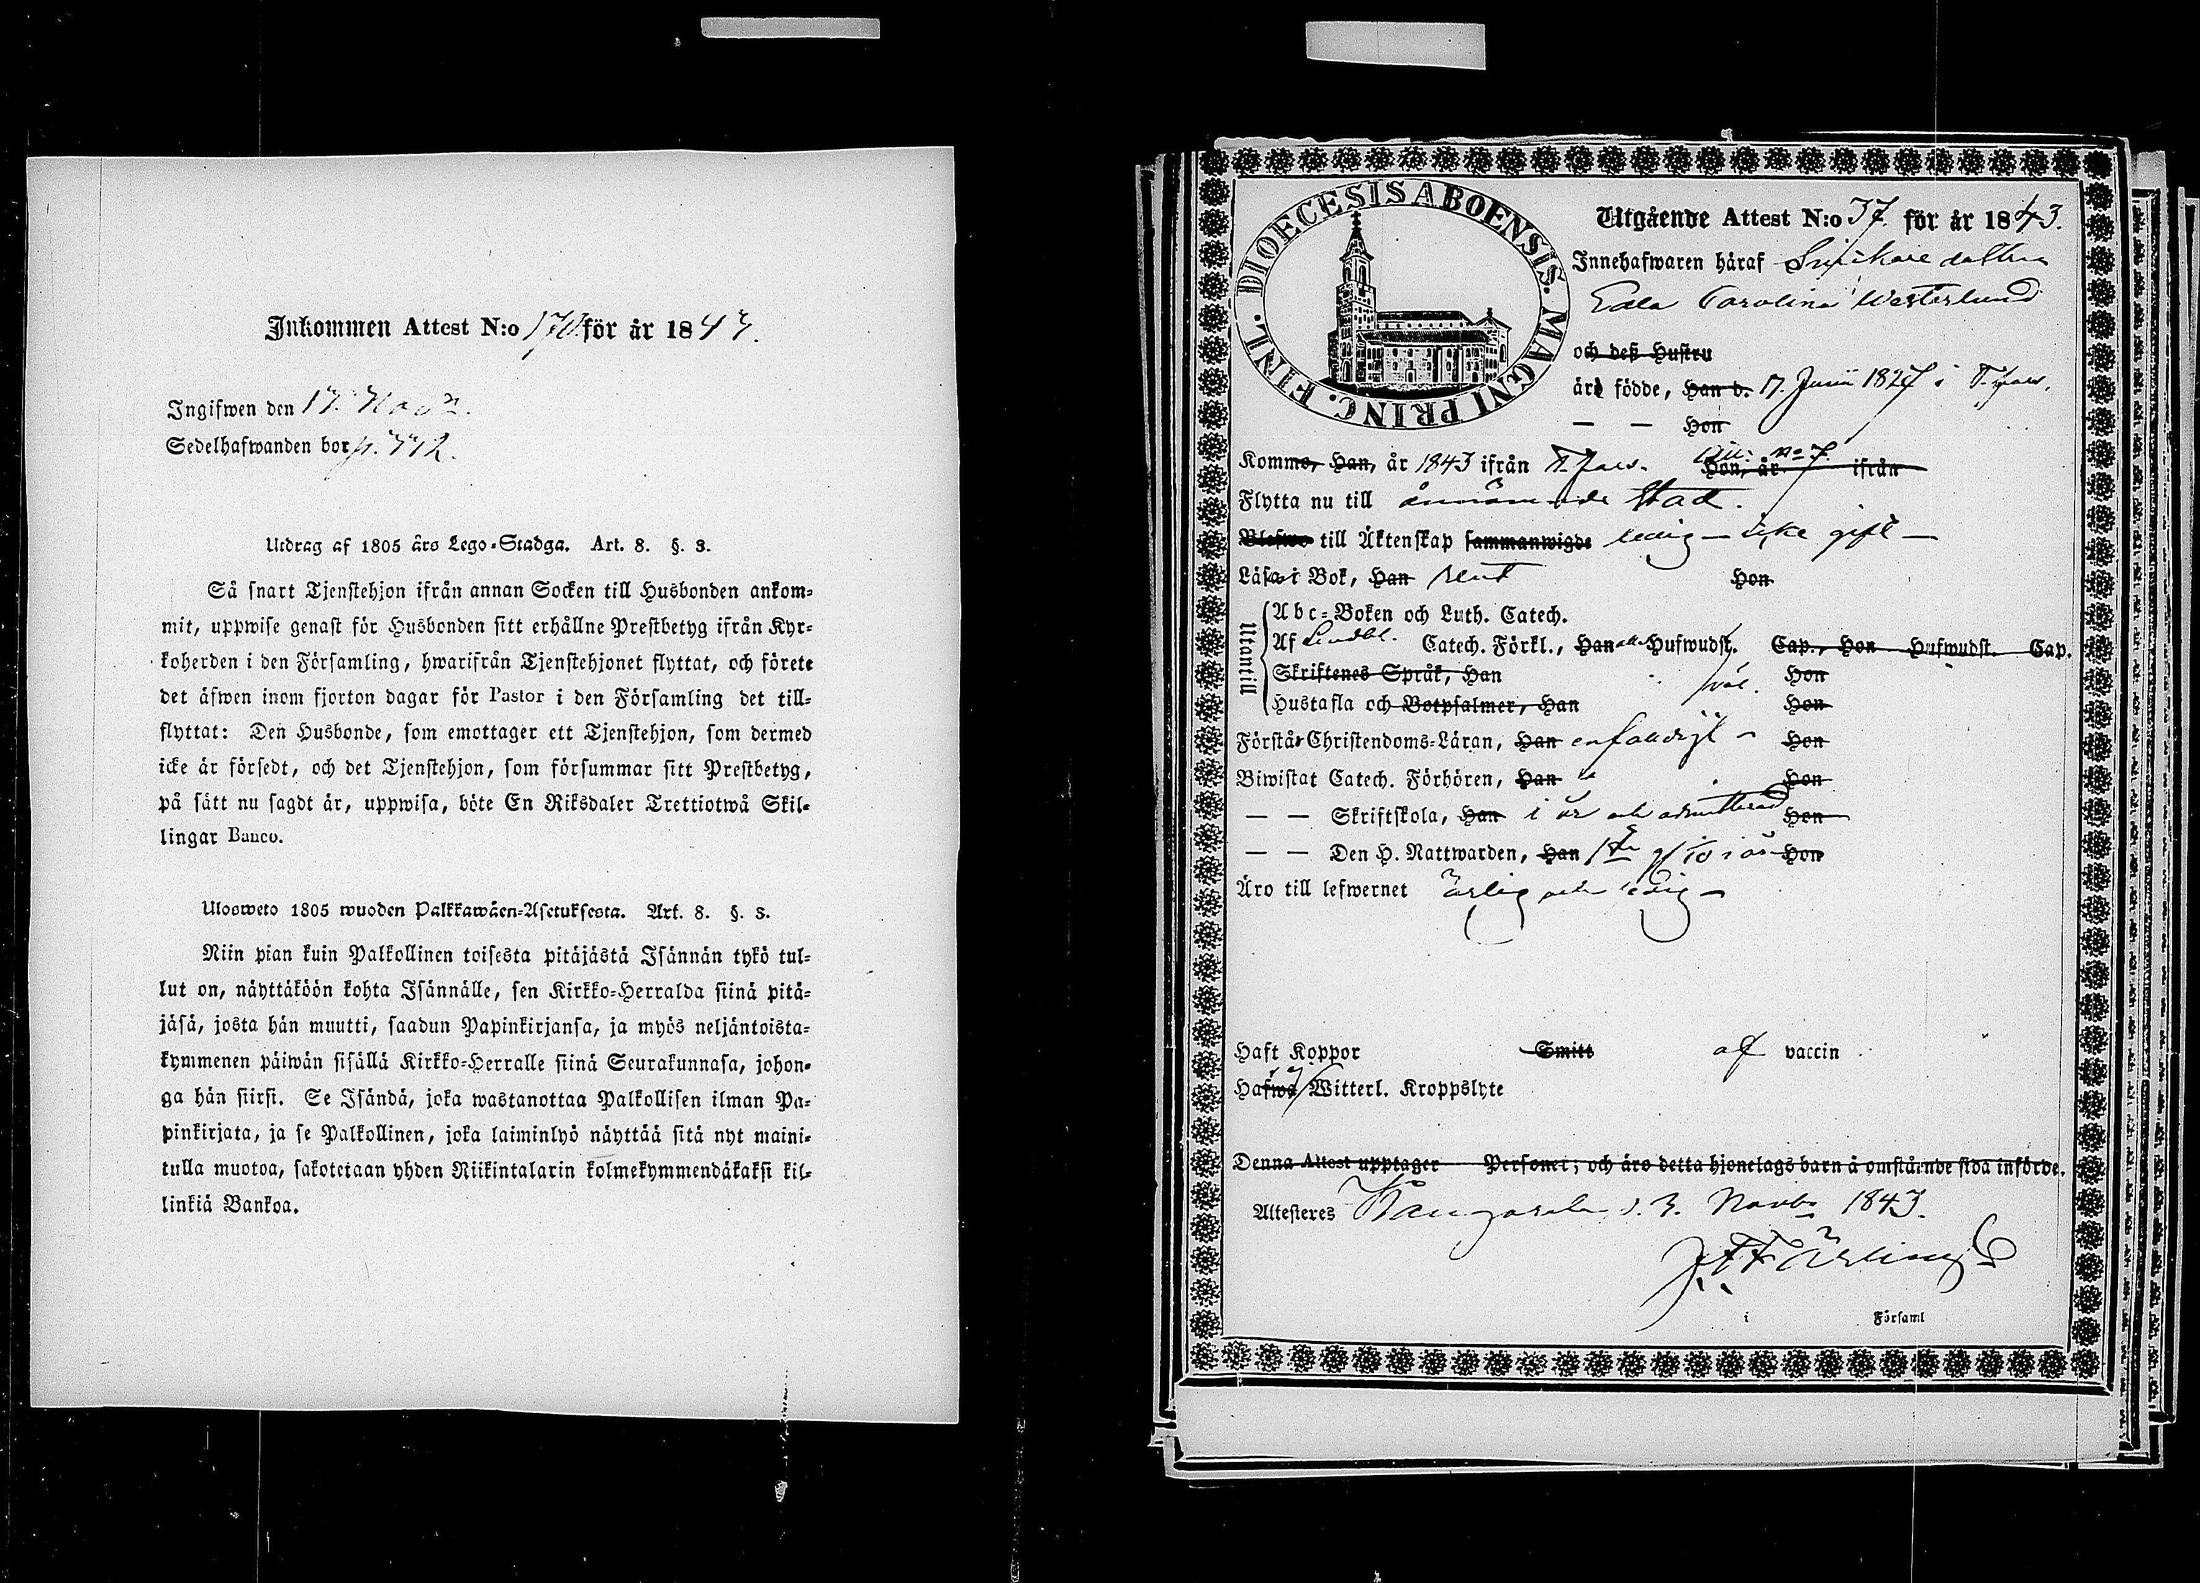 Inkommen Attest N:o 170 för år 1843.
Ingifwen den 17. Nov:r.
Sedelhafwanden bor p. 442.
Utdrag af 1805 års Lego-Stadga. Art. 8. §. 3.
Så snart Tjenstehjon ifrån annan Socken till Husbonden ankom-
mit, uppwise genast för Husbonden sitt erhållne Prestbetyg ifrån Kyr-
koherden i den Församling, hwarifrån Tjenstehjonet flyttat, och förete
det äfwen inom fjorton dagar för Pastor i den Församling det till-
flyttat: Den Husbonde, som emottager ett Tjenstehjon, som dermed
icke är försedt, och det Tjenstehjon, som försummar sitt Prestbetyg,
på sätt nu sagdt är, uppwisa, böte En Riksdaler Trettiotwå Skil-
lingar Banco.
Ulosweto 1805 wuoden Palkkawäen-Asetuksesta. Art. 8. §. 3.
Niin pian kuin Palkollinen toisesta pitäjästä Isännän tykö tul-
lut on, näyttäköön kohta Isännälle, sen Kirkko-Herralda siinä pitä-
jäsä, josta hän muutti, saadun Papinkirjansa, ja myös neljäntoista-
kymmenen päiwän sisällä Kirkko-Herralle siinä Seurakunnasa, johon-
ga hän siirsi. Se Isändä, joka wastanottaa Palkollisen ilman Pa-
pinkirjata, ja se Palkollinen, joka laiminlyö näyttää sitä nyt maini-
tulla muotoa, sakotetaan yhden Riikintalarin kolmekymmendäkaksi kil-
linkiä Bankoa.
DIOECESIS ABOENSIS. MAGNI PRINC. FINL.
Utgående Attest N:o 37 för år 1843.
Innehafwaren häraf Snickare dottren
Edla Carolina Westerlund
och deß Hustru
äro födde, Han d. 17. Junii 1827 i
— — Hon
Komme, Han, år 1843 ifrån Hon, år ifrån
Flytta nu till stad.
Blefwo till Äktenskap sammanwigde ledig — icke gift —
Läsa i Bok, Han rent Hon
Utantill
Abc-Boken och Luth. Catech.
Af Lindbl. Catech. Förkl., Han alla Hufwudst. Cap., Hon Hufwudst. Cap.
Skriftenes Språk, Han väl. Hon
Hustafla och Botpsalmer, Han Hon
Förstår Christendoms-Läran, Han enfaldigt — Hon
Biwistat Catech. Förhören, Han Hon
— — Skriftskola, Han i år och admitterad Hon
— — Den H. Nattwarden, Han i år Hon
Äro till lefwernet ärlig och ledig —
Haft Koppor Smitt af vaccin
Hafwa Witterl. Kroppslyte
Denna Attest upptager Personer; och äro detta hjonelags barn å omstående sida införde.
Attesteres Kangasala d. 3. Novbr 1843.
i Församl